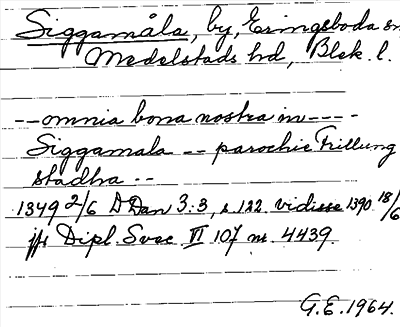 Siggamåla, by, Eringsboda sn
Medelstads hd, Blek. l.
--omnia bona nostra in----
Siggamala -- parochie Frillung
stadha --
1349 2/6 D Dan 3:3, s. 122 vidisse 1390 18/6
jfr Dipl. Svec VI 107 nr. 4439.
G.E. 1964.